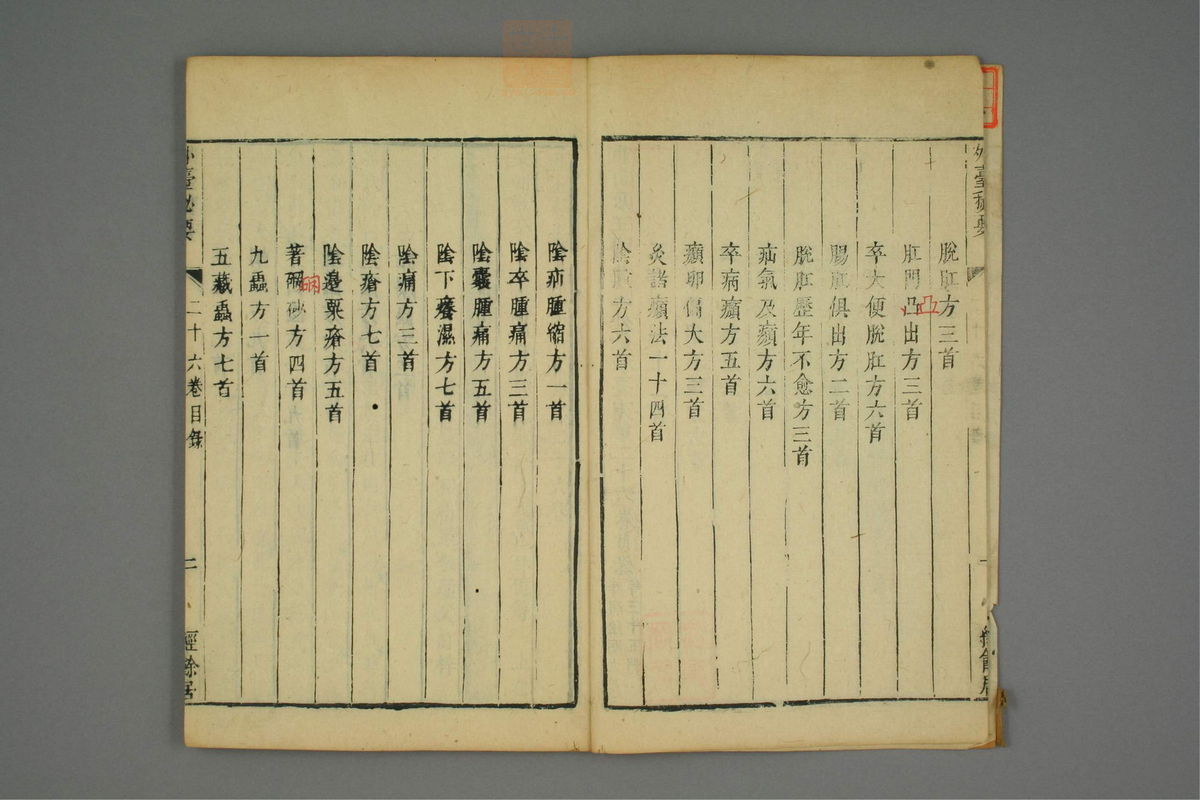 外臺秘要
脫肛方三首
肛門凸出方三首
凸
卒大便脫肛方六首
腸肛俱出方二首
脫肛歷年不愈方三首
疝氣及㿗方六首
卒病㿗方五首
㿗卵偏大方三首
灸諸㿗法一十四首
陰㿗方六首
陰疝腫縮方一首
陰卒腫痛方三首
陰囊腫痛方五首
陰下癢濕方七首
陰痛方三首
陰瘡方七首
陰邊粟瘡方五首
著硇砂方四首
九蟲方一首
五藏蟲方七首
外臺秘要
二十六卷目錄
二
經餘居